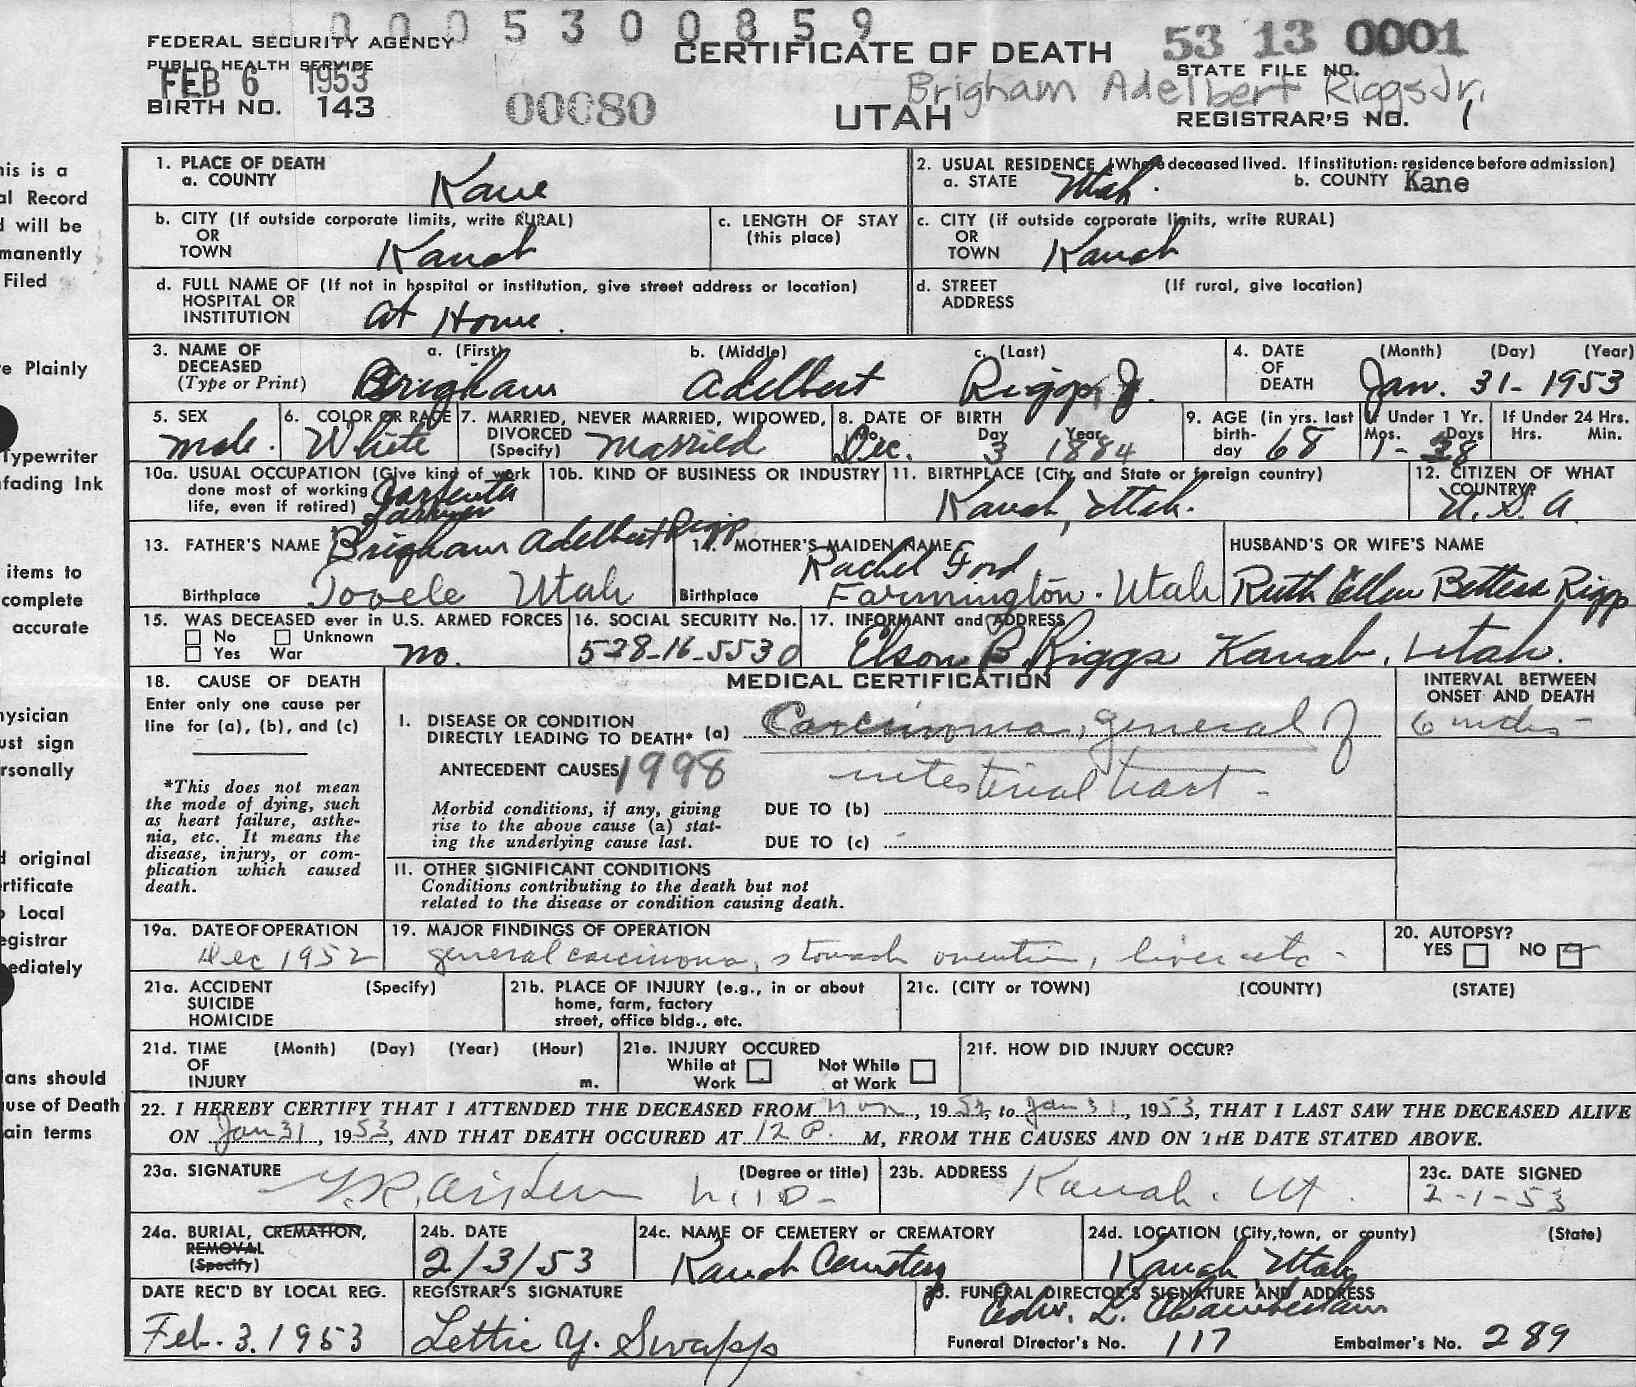 0005300859
FEDERAL SECURITY AGENCY
PUBLIC HEALTH SERVICE
FEB 6 1953
BIRTH NO. 143
00080
CERTIFICATE OF DEATH
UTAH
53 13 0001
STATE FILE NO.
Brigham Adelbert Riggs Jr.
REGISTRAR'S NO. 1
his is a
al Record
d will be
manently
Filed
e Plainly
Typewriter
nfading Ink
items to
complete
accurate
hysician
ust sign
rsonally
d original
rtificate
Local
egistrar
ediately
ans should
use of Death
ain terms
1. PLACE OF DEATH
a. COUNTY Kane
2. USUAL RESIDENCE (Where deceased lived. If institution: residence before admission)
a. STATE Utah. b. COUNTY Kane
b. CITY (If outside corporate limits, write RURAL)
OR
TOWN Kanab
c. LENGTH OF STAY
(this place)
c. CITY (if outside corporate limits, write RURAL)
OR
TOWN Kanab
d. FULL NAME OF (If not in hospital or institution, give street address or location)
HOSPITAL OR
INSTITUTION At Home.
d. STREET (If rural, give location)
ADDRESS
3. NAME OF DECEASED (Type or Print)
a. (First) b. (Middle) c. (Last)
Brigham Adelbert Riggs Jr.
4. DATE OF DEATH (Month) (Day) (Year)
Jan. 31 - 1953
5. SEX
Male.
6. COLOR OR RACE
White
7. MARRIED, NEVER MARRIED, WIDOWED,
DIVORCED
(Specify) Married
8. DATE OF BIRTH
Mo. Day Year
Dec. 3 1884
9. AGE (in yrs. last
birth-
day 68
If Under 1 Yr.
Mos. Days
1 - 28
If Under 24 Hrs.
Hrs. Min.
10a. USUAL OCCUPATION (Give kind of work
done most of working
life, even if retired) Carpenter
Farmer
10b. KIND OF BUSINESS OR INDUSTRY
11. BIRTHPLACE (City and State or foreign country)
Kanab, Utah.
12. CITIZEN OF WHAT
COUNTRY?
U.S.A
13. FATHER'S NAME Brigham Adelbert Riggs
Birthplace Tooele Utah
14. MOTHER'S MAIDEN NAME
Rachel Ford
Birthplace Farmington. Utah
HUSBAND'S OR WIFE'S NAME
Ruth Ellen Riggs
15. WAS DECEASED ever in U.S. ARMED FORCES
No Unknown
Yes War no.
16. SOCIAL SECURITY No.
538-16-5530
17. INFORMANT and ADDRESS
Elson B. Riggs Kanab, Utah.
18. CAUSE OF DEATH
Enter only one cause per
line for (a), (b), and (c)
*This does not mean
the mode of dying, such
as heart failure, asthe-
nia, etc. It means the
disease, injury, or com-
plication which caused
death.
MEDICAL CERTIFICATION
INTERVAL BETWEEN
ONSET AND DEATH
I. DISEASE OR CONDITION
DIRECTLY LEADING TO DEATH* (a) Carcinoma, general of
6
ANTECEDENT CAUSES 1998
intestinal tract -
Morbid conditions, if any, giving
rise to the above cause (a) stat-
ing the underlying cause last.
DUE TO (b)
DUE TO (c)
II. OTHER SIGNIFICANT CONDITIONS
Conditions contributing to the death but not
related to the disease or condition causing death.
19a. DATE OF OPERATION
Dec 1952
19. MAJOR FINDINGS OF OPERATION
general carcinoma, stomach, liver etc -
20. AUTOPSY?
YES NO
21a. ACCIDENT (Specify)
SUICIDE
HOMICIDE
21b. PLACE OF INJURY (e.g., in or about
home, farm, factory
street, office bldg., etc.
21c. (CITY or TOWN) (COUNTY) (STATE)
21d. TIME (Month) (Day) (Year) (Hour)
OF
INJURY m.
21e. INJURY OCCURED
While at Work Not While at Work
21f. HOW DID INJURY OCCUR?
22. I HEREBY CERTIFY THAT I ATTENDED THE DECEASED FROM Nov, 1952, to Jan 31, 1953, THAT I LAST SAW THE DECEASED ALIVE
ON Jan 31, 1953, AND THAT DEATH OCCURED AT 12 P. M, FROM THE CAUSES AND ON THE DATE STATED ABOVE.
23a. SIGNATURE (Degree or title)
M.D-
23b. ADDRESS
Kanab. Ut.
23c. DATE SIGNED
2-1-53
24a. BURIAL, CREMATION,
REMOVAL
(Specify)
24b. DATE
2/3/53
24c. NAME OF CEMETERY or CREMATORY
Kanab Cemetery
24d. LOCATION (City, town, or county) (State)
Kanab Utah
DATE REC'D BY LOCAL REG.
Feb. 3. 1953
REGISTRAR'S SIGNATURE
Lettie Y. Swapp
25. FUNERAL DIRECTOR'S SIGNATURE AND ADDRESS
L. Chamberlain
Funeral Director's No. 117 Embalmer's No. 289